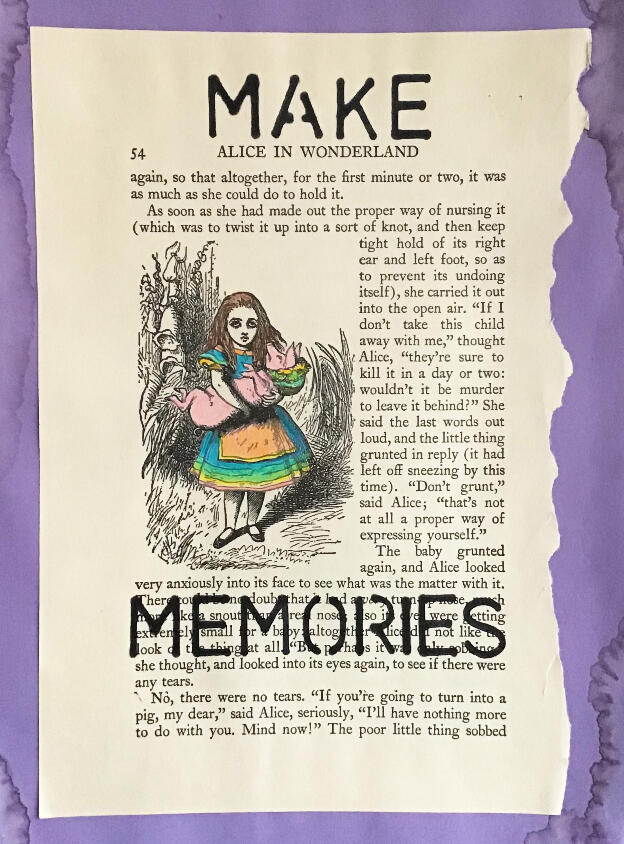 MAKE
54 ALICE IN WONDERLAND
again, so that altogether, for the first minute or two, it was
as much as she could do to hold it.
As soon as she had made out the proper way of nursing it
(which was to twist it up into a sort of knot, and then keep
tight hold of its right
ear and left foot, so as
to prevent its undoing
itself), she carried it out
into the open air. “If I
don’t take this child
away with me,” thought
Alice, “they’re sure to
kill it in a day or two:
wouldn’t it be murder
to leave it behind?” She
said the last words out
loud, and the little thing
grunted in reply (it had
left off sneezing by this
time). “Don’t grunt,”
said Alice; “that’s not
at all a proper way of
expressing yourself.”
The baby grunted
again, and Alice looked
very anxiously into its face to see what was the matter with it.
There could be no doubt that it had a very turn-up nose, much
MEMORIES
more like a snout than a real nose; also its eyes were getting
extremely small for a baby: altogether Alice did not like the
look of the thing at all. “But perhaps it was only sobbing,”
she thought, and looked into its eyes again, to see if there were
any tears.
No, there were no tears. “If you’re going to turn into a
pig, my dear,” said Alice, seriously, “I’ll have nothing more
to do with you. Mind now!” The poor little thing sobbed